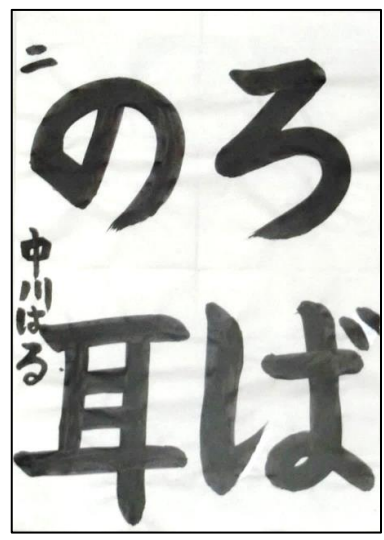 ろば
の耳
二 中川はる